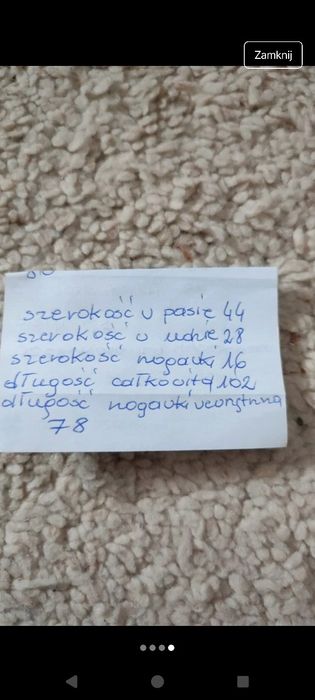 Zamknij
szerokość w pasie 44
szerokość w udzie 28
szerokość nogawki 16
długość całkowita 102
długość nogawki wewnętrzna
78